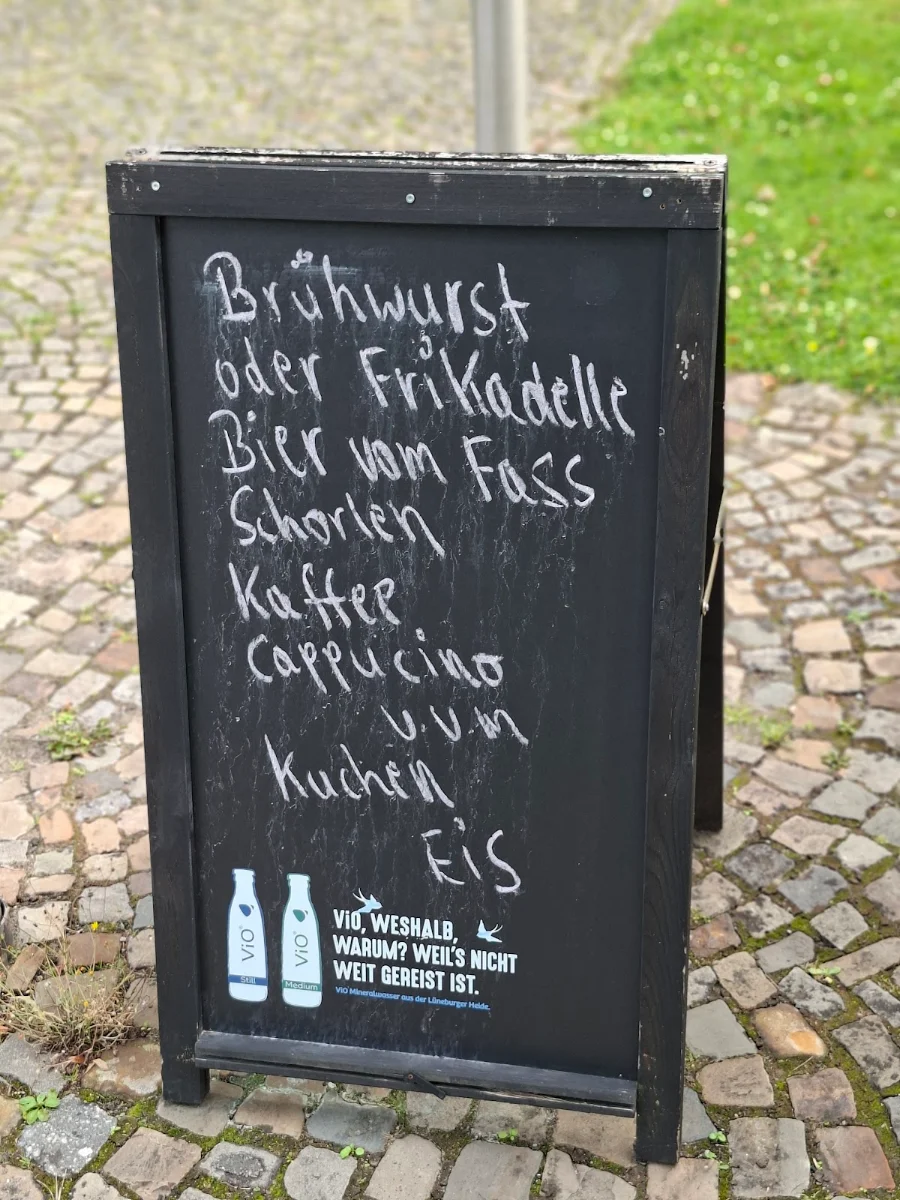 Brühwurst
oder Frikadelle
Bier vom Fass
Schorlen
Kaffee
Cappucino
u.v.m
Kuchen
Eis
ViO
Still
ViO
Medium
ViO, WESHALB,
WARUM? WEIL'S NICHT
WEIT GEREIST IST.
ViO Mineralwasser aus der Lüneburger Heide.